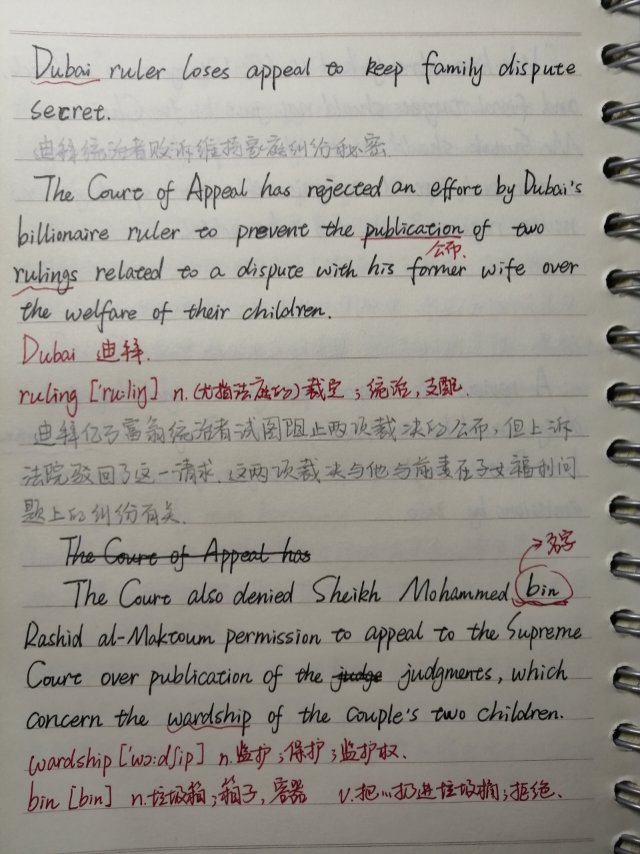 Dubai ruler loses appeal to keep family dispute
secret.
迪拜统治者败诉维持家庭纠纷秘密
The Court of Appeal has rejected an effort by Dubai's
billionaire ruler to prevent the publication of two
公布.
rulings related to a dispute with his former wife over
the welfare of their children.
Dubai 迪拜.
ruling ['ru:liŋ] n.(尤指法庭的)裁定;统治,支配.
迪拜亿万富翁统治者试图阻止两项裁决的公布,但上诉
法院驳回了这一请求.这两项裁决与他与前妻在子女福利问
题上的纠纷有关.
The Court of Appeal has
名字
The Court also denied Sheikh Mohammed bin
Rashid al-Maktoum permission to appeal to the Supreme
Court over publication of the judge judgments, which
concern the wardship of the couple's two children.
wardship ['wɔ:dʃip] n.监护;保护;监护权.
bin [bin] n.垃圾箱;箱子,容器 v.把…扔进垃圾桶;拒绝.